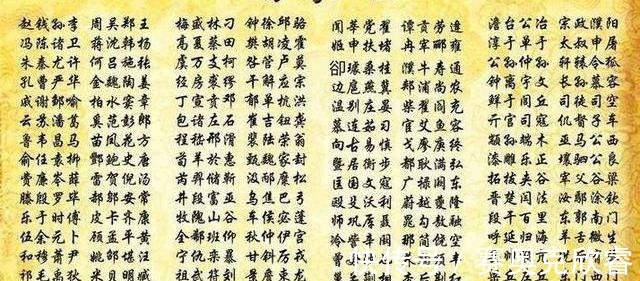 赵钱孙李 周吴郑王 梅盛林刁 钟徐邱骆 闻莘党翟 谭贡劳逄 澹台公冶 宗政濮阳
冯陈褚卫 蒋沈韩杨 高夏蔡田 樊胡凌霍 姬申扶堵 冉宰郦雍 淳于单于 太叔申屠
朱秦尤许 何吕施张 虞万支柯 昝管卢莫 郤璩桑桂 濮牛寿通 公孙仲孙 轩辕令狐
孔曹严华 金魏陶姜 经房裘缪 干解应宗 边扈燕冀 郏浦尚农 钟离宇文 长孙慕容
戚谢邹喻 柏水窦章 丁宣贲邓 郁单杭洪 温别庄晏 柴瞿阎充 鲜于闾丘 司徒司空
云苏潘葛 奚范彭郎 包诸左石 崔吉钮龚 慕连茹习 宦艾鱼容 亓官司寇 仉督子车
鲁韦昌马 苗凤花方 程嵇邢滑 裴陆荣翁 向古易慎 戈廖庾终 颛孙端木 巫马公西
俞任袁柳 酆鲍史唐 荀羊於惠 甄麴家封 暨居衡步 都耿满弘 漆雕乐正 壤驷公良
费廉岑薛 雷贺倪汤 芮羿储靳 汲邴糜松 匡国文寇 广禄阙东 拓拔夹谷 宰父谷梁
滕殷罗毕 郝邬安常 井段富巫 乌焦巴弓 殴殳沃利 蔚越夔隆 晋楚闫法 汝鄢涂钦
乐于时傅 皮卞齐康 牧隗山谷 车侯宓蓬 师巩厍聂 晁勾敖融 段干百里 东郭南门
伍余元卜 顾孟平黄 全郗班仰 秋仲伊宫 冷訾辛阚 那简饶空 呼延归海 羊舌微生
和穆萧尹 姚邵湛汪 宁仇栾暴 甘钭厉戎
赛奥克欣睿